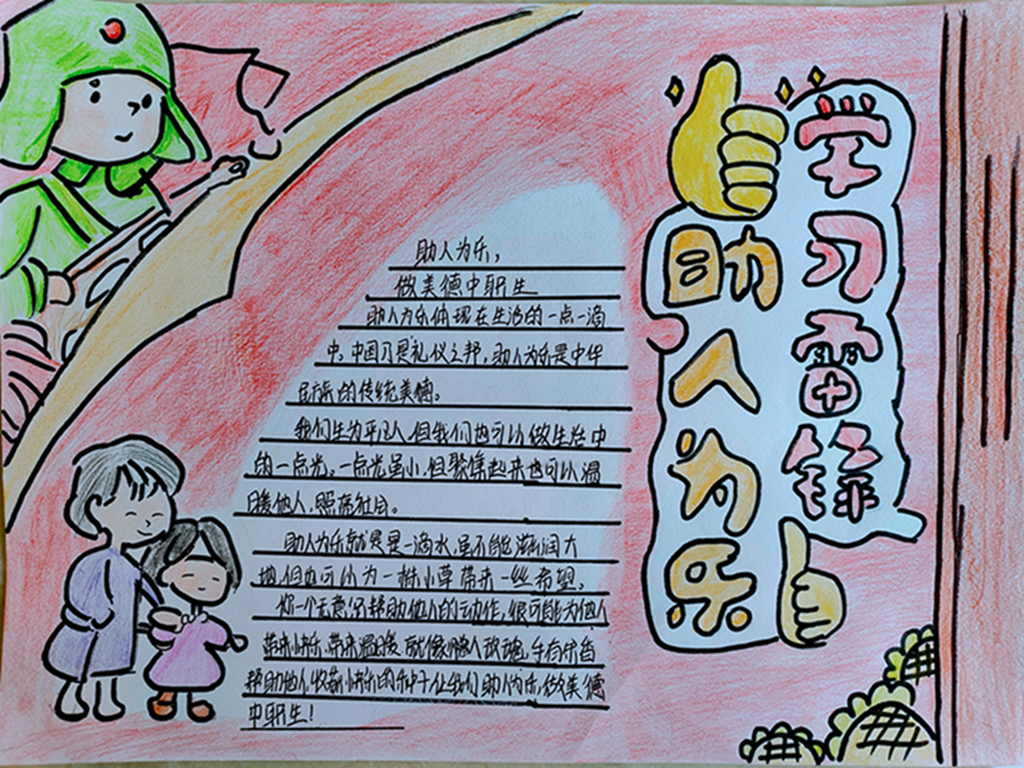 学习雷锋
助人为乐
助人为乐，
做美德中职生
助人为乐体现在生活的一点一滴
中，中国乃是礼仪之邦，助人为乐是中华
民族的传统美德。
我们生为平凡人，但我们也可以做生活中
的一点光。一点光虽小，但聚集起来也可以温
暖他人，照亮社会。
助人为乐就是是一滴水，虽不能滋润大
地，但也可以为一株小草带来一丝希望。
你一个无意间帮助他人的动作，很可能为他人
带来快乐，带来温暖，就像赠人玫瑰，手有余香
帮助他人，收获快乐的乐，让我们助人为乐，做美德
中职生！